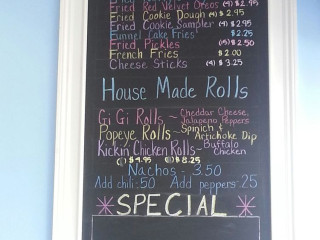 Fried Red Velvet Oreos (4) $2.95
Fried Cookie Dough (4) $2.95
Fried Cookie Sampler (4) $2.95
Funnel Cake Fries $2.25
Fried Pickles (15) $2.50
French Fries $2.00
Cheese Sticks (4) $3.25
House Made Rolls
Gi Gi Rolls ~ Cheddar Cheese
Jalapeno Peppers
Popeye Rolls ~ Spinich &
Artichoke Dip
Kickin Chicken Rolls ~ Buffalo
Chicken
(1) $4.95 $8.25
Nachos - 3.50
Add chili .50 Add peppers .25
SPECIAL